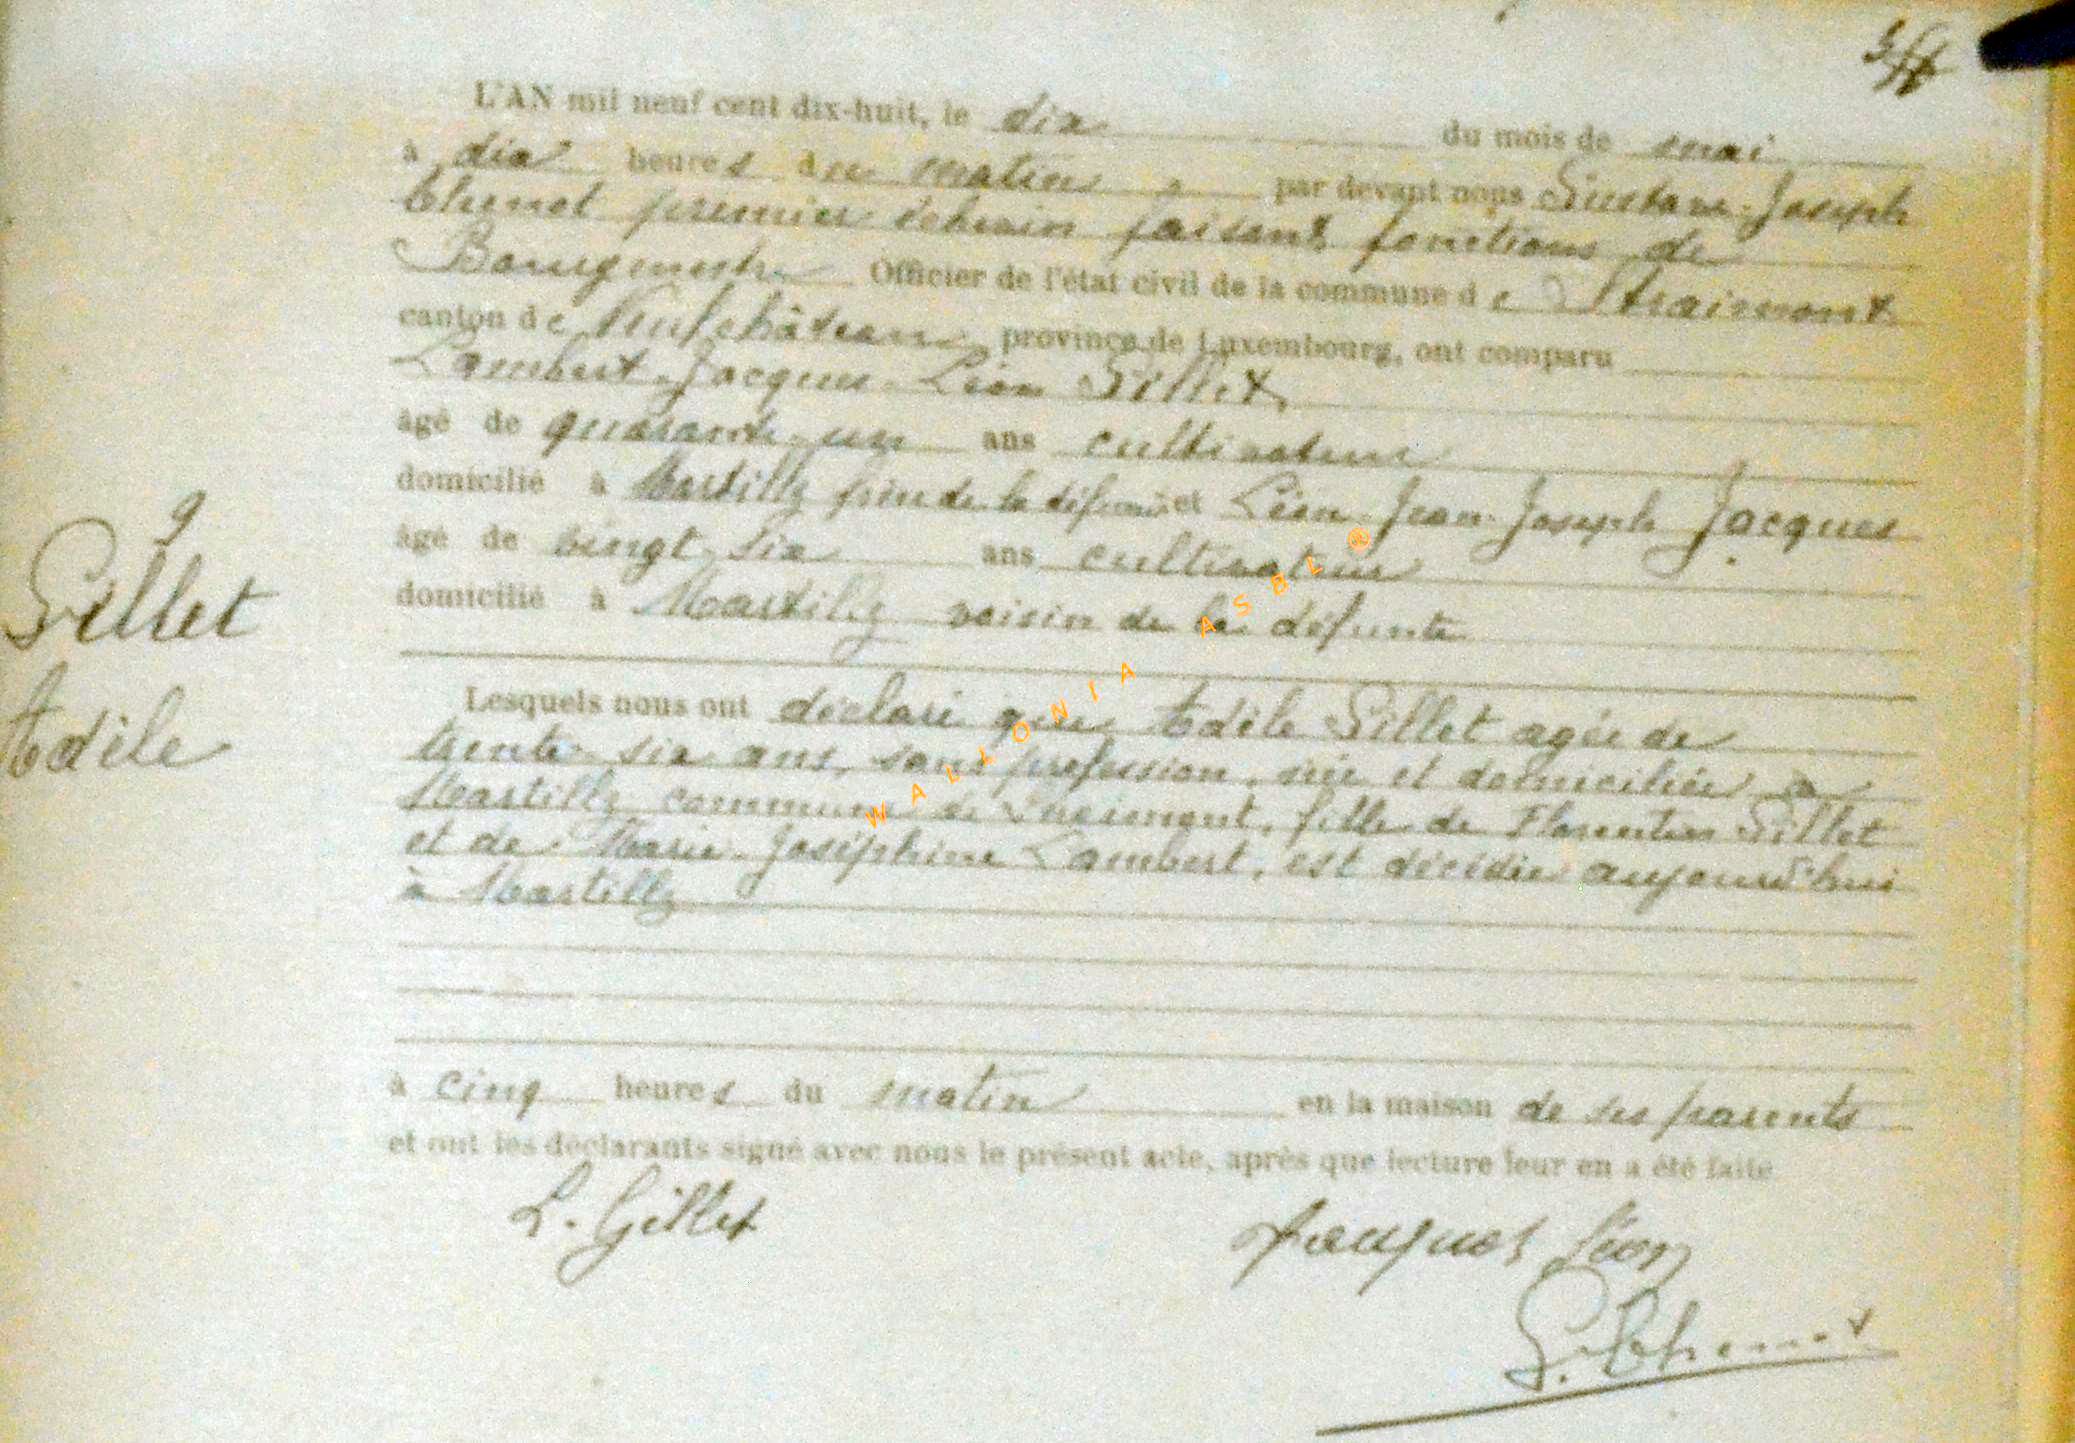 L'AN mil neuf cent dix-huit, le dix du mois de mai
à dix heures du matin, par devant nous Gustave-Joseph
Thenot premier échevin faisant fonctions de
Bourgmestre Officier de l'état civil de la commune de Straimont
canton de Neufchâteau province de Luxembourg, ont comparu
Lambert-Jacques-Léon Gillet,
âgé de quarante-un ans cultivateur
domicilié à Martilly frère de la défunte et Léon-Jean-Joseph Jacques
âgé de vingt-six ans cultivateur
domicilié à Martilly voisin de la défunte
9
Gillet
Adèle
Lesquels nous ont déclaré que Adèle Gillet agée de
trente-six ans, sans profession, née et domiciliée à
Martilly commune de Straimont, fille de Florentin Gillet
et de Marie-Joséphine Lambert, est décédée aujourd'hui
à Martilly
à cinq heures du matin en la maison de ses parents
et ont les déclarants signé avec nous le présent acte, après que lecture leur en a été faite
L. Gillet
Jacques Léon
G. Thenot
WALLONIA ASBL ®